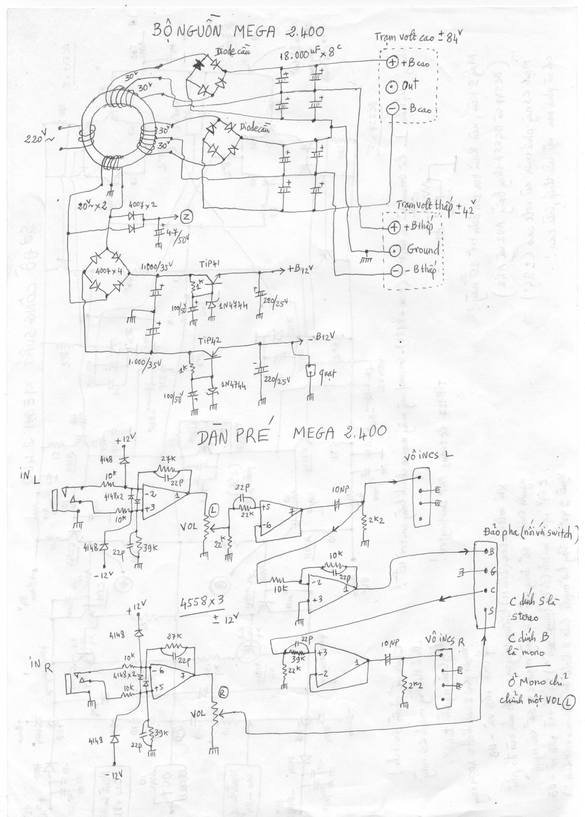 BỘ NGUỒN MEGA 2.400
Diode cầu
18.000uF x 8c
Trạm volt cao ± 84V
+B cao
Out
-B cao
30V
30V
30V
30V
Diode cầu
220V~
20V~ x 2
4007 x 2
Z
47/50V
Trạm volt thấp ± 42V
+B thấp
Ground
-B thấp
4007 x 4
1.000/35V
TIP41
+B12V
1K
100/50V
1N4744
220/25V
TIP42
-B12V
1.000/35V
1K
100/50V
1N4744
220/25V
quạt
DÀN PRÉ MEGA 2.400
+12V
4148
27K
22p
IN L
10K
4148x2
-2
+3
1
10K
4148
22p
39K
-12V
VOL
L
22p
22K
22K
+5
-6
7
10NP
2K2
VÔ INCS L
10K
22p
10K
-2
+3
1
Đảo pha (nối với switch)
B
G
C
S
C dính S là
stereo
C dính B
là mono
Ở Mono chỉ
chỉnh một VOL L
4558 x 3
± 12V
+12V
4148
27K
22p
IN R
10K
4148x2
-6
+5
7
10K
4148
22p
39K
-12V
VOL
R
22p
39K
22K
+3
-2
1
10NP
2K2
VÔ INCS R